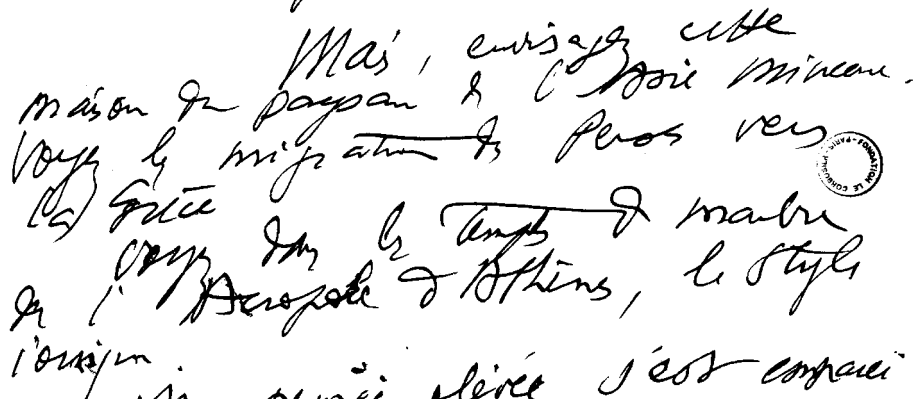 Mais, envisagez cette
maison du paysan de l'Asie mineure.
Voyez les migrations des Perses vers
la Grèce
Voyez dans les temples de marbre
de l'Acropole d'Athènes, le style
ionique
pensée élevée s'est
FONDATION LE CORBUSIER - PARIS